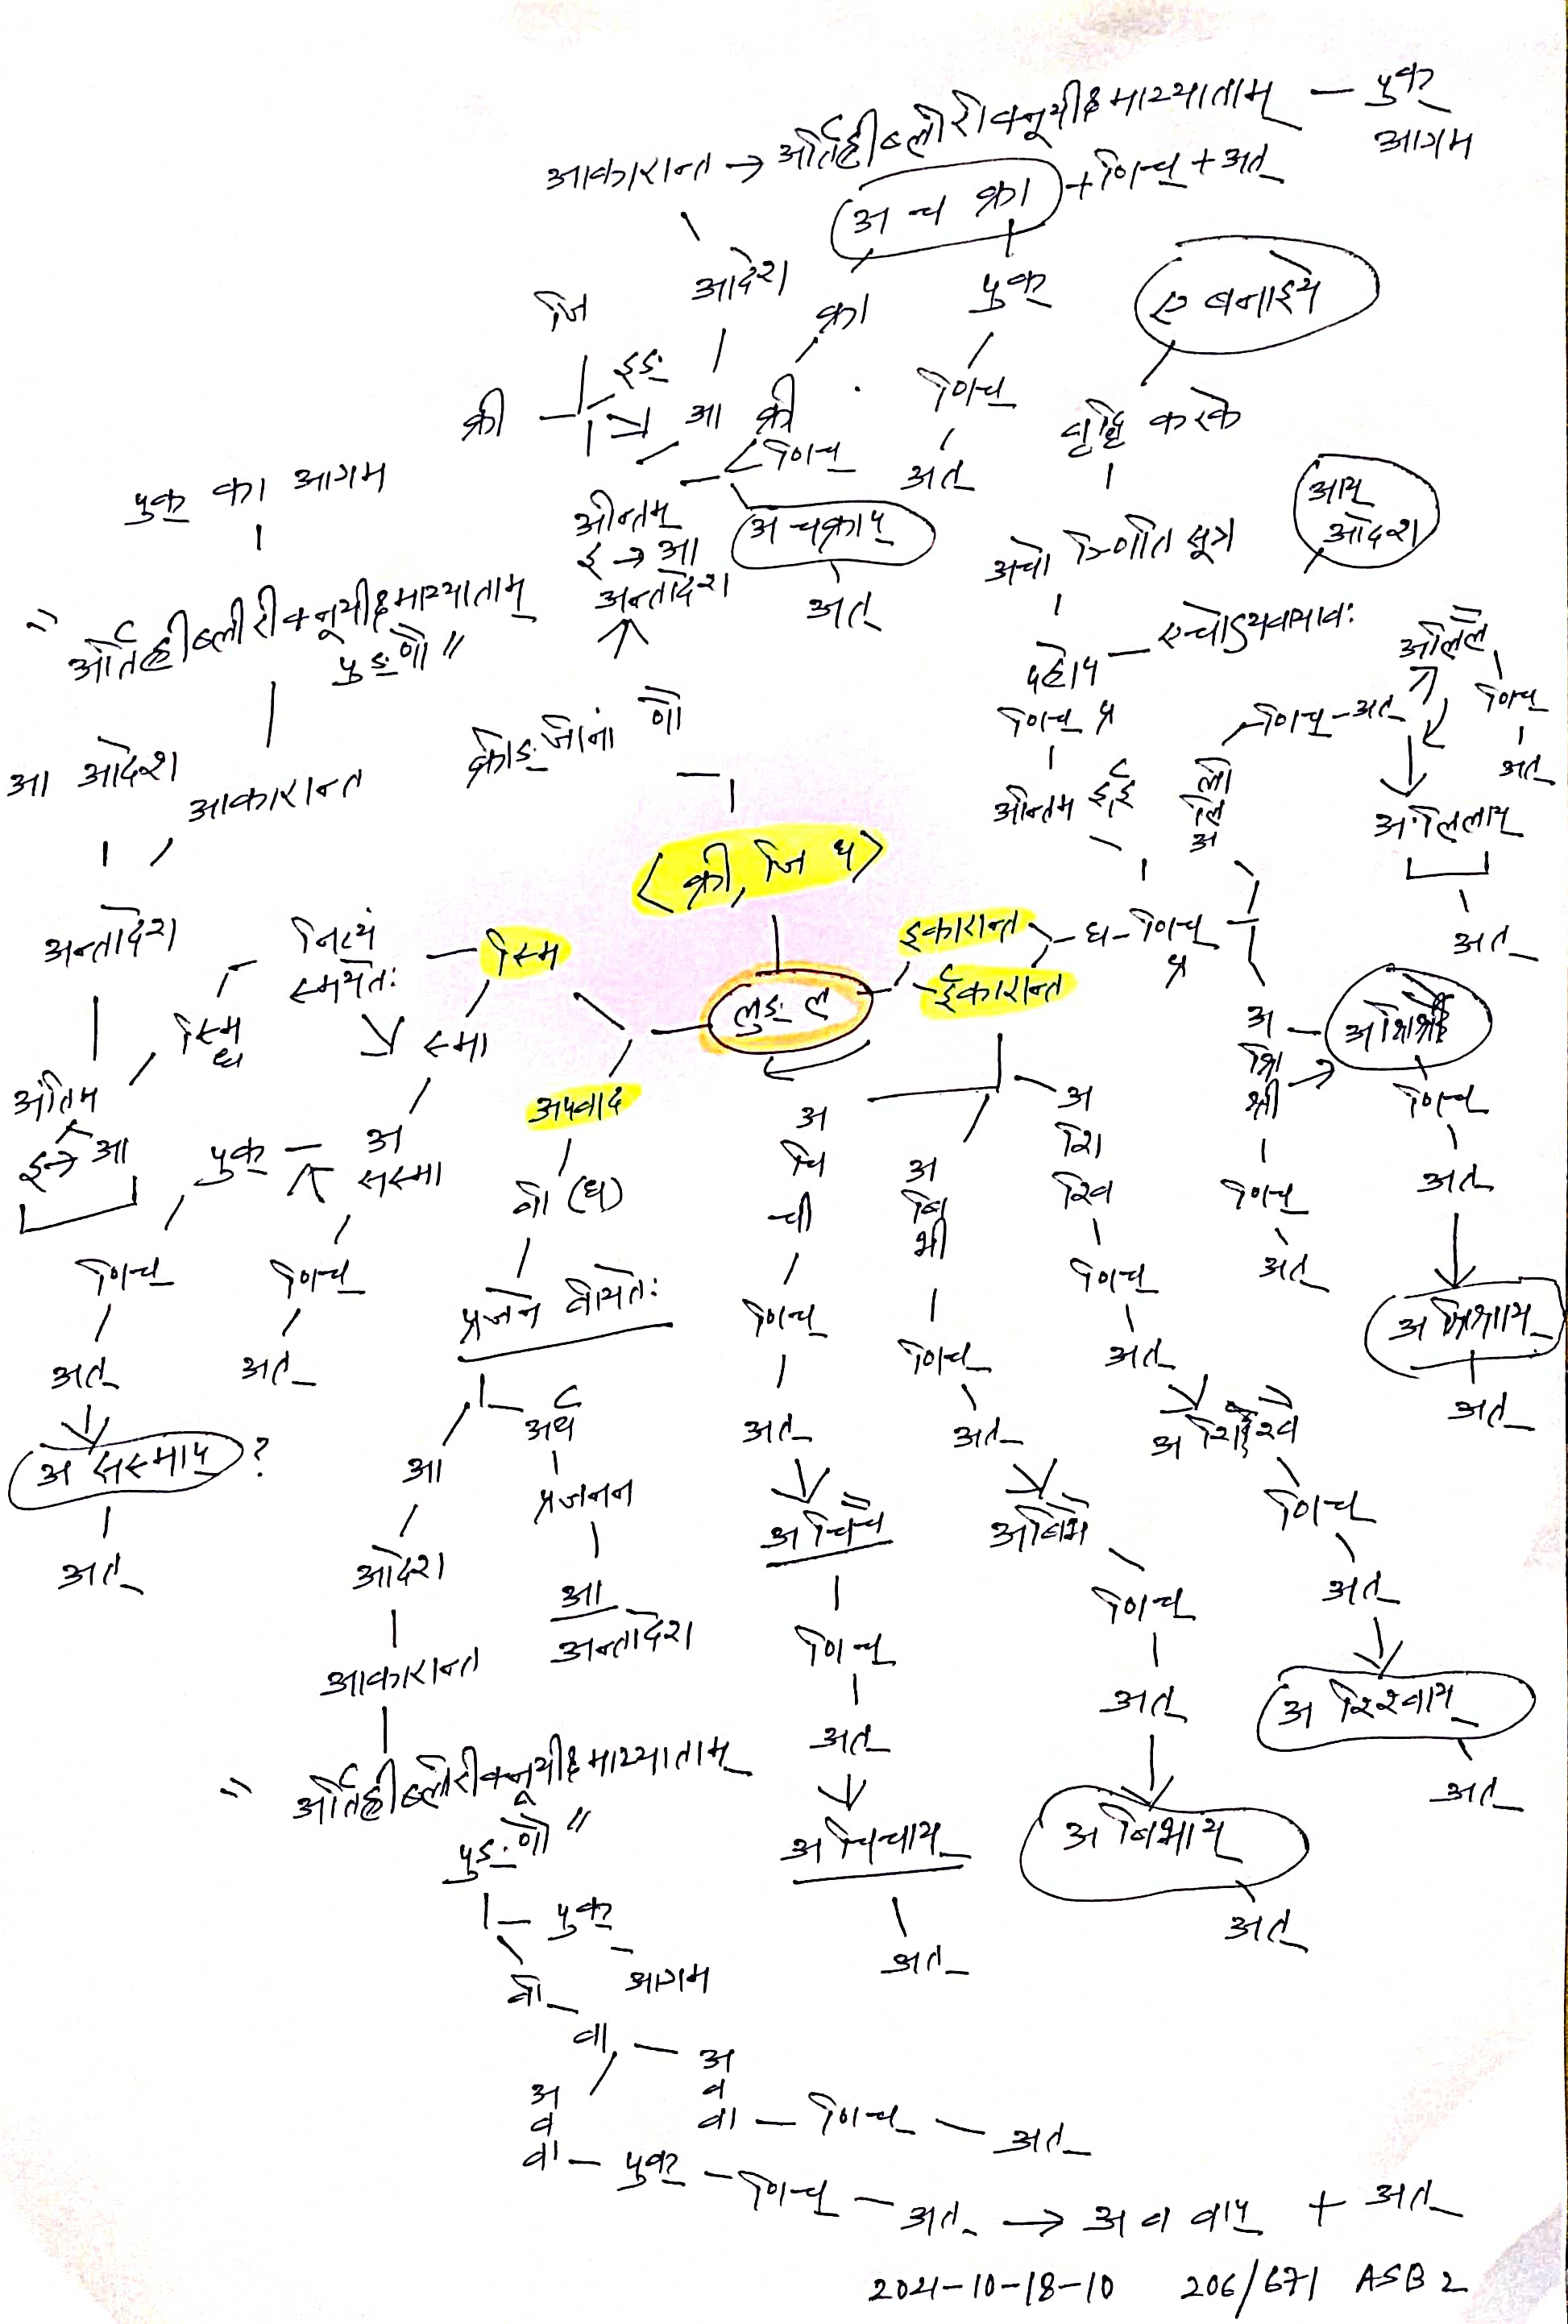 आकारान्त → अर्तिह्रीब्लीरीक्नूयीक्ष्माय्याताम् — पुक्
आगम
अ च क्रा + णिच् + अत्
आदेश
जि
क्रा
पुक्
ए बनाइये
इङ्
क्री
आ
क्री
णिच्
णिच्
अत्
वृद्धि करके
पुक् का आगम
अन्तिम
इ → आ
अन्तादेश
अ चक्राप्
अत्
अचो ञ्णिति सूत्र
आय्
आदेश
" अर्तिह्रीब्लीरीक्नूयीक्ष्माय्याताम्
पुङ् णौ "
एचोऽयवायावः
णिच्
अन्तिम इ ई
ली
लि
अ
णिच् - अत्
अलिलै
णिच्
अत्
अलिलाय्
अत्
क्रीङ्जीनां णौ
आ आदेश
आकारान्त
अन्तादेश
< क्री, जि ध >
नित्यं
स्मयतेः
स्मि
स्मि
ध
स्मा
लुङ् ल
इकारान्त
ईकारान्त
ध - णिच्
अंतिम
इ → आ
पुक्
अ
सस्मा
अपवाद
वी (ध)
अ
चि
ची
अ
बि
भी
अ
शि
श्वि
अ
शि
श्री
अशिश्रै
णिच्
अत्
णिच्
अत्
अ शिश्राय्
अत्
णिच्
अत्
णिच्
अत्
अ सस्माप् ?
अत्
प्रजने वीयतेः
आ
अर्थ
प्रजनन
आ
अन्तादेश
आदेश
आकारान्त
णिच्
अत्
अ चिचै
णिच्
अत्
अ चिचाय्
अत्
णिच्
अत्
अबिभै
णिच्
अत्
अ बिभाय्
अत्
णिच्
अत्
अ शिश्वै
णिच्
अत्
अ शिश्वाय्
अत्
" अर्तिह्रीब्लीरीक्नूयीक्ष्माय्याताम्
पुङ् णौ "
पुक्
आगम
वी
वा
अ
व
वा — णिच् — अत्
अ
व
वा — पुक् — णिच् — अत् → अ व वाप् + अत्
2021-10-18-10 206/671 ASB 2